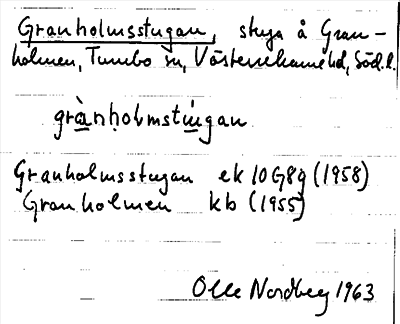 Granholmsstugan, stuga å Gran-
holmen, Tumbo sn, Västerrekarne hd, Södl.
grànhọlmstúgan
Granholmsstugan ek 10G8g (1958)
Granholmen kb (1955)
Olle Nordberg 1963